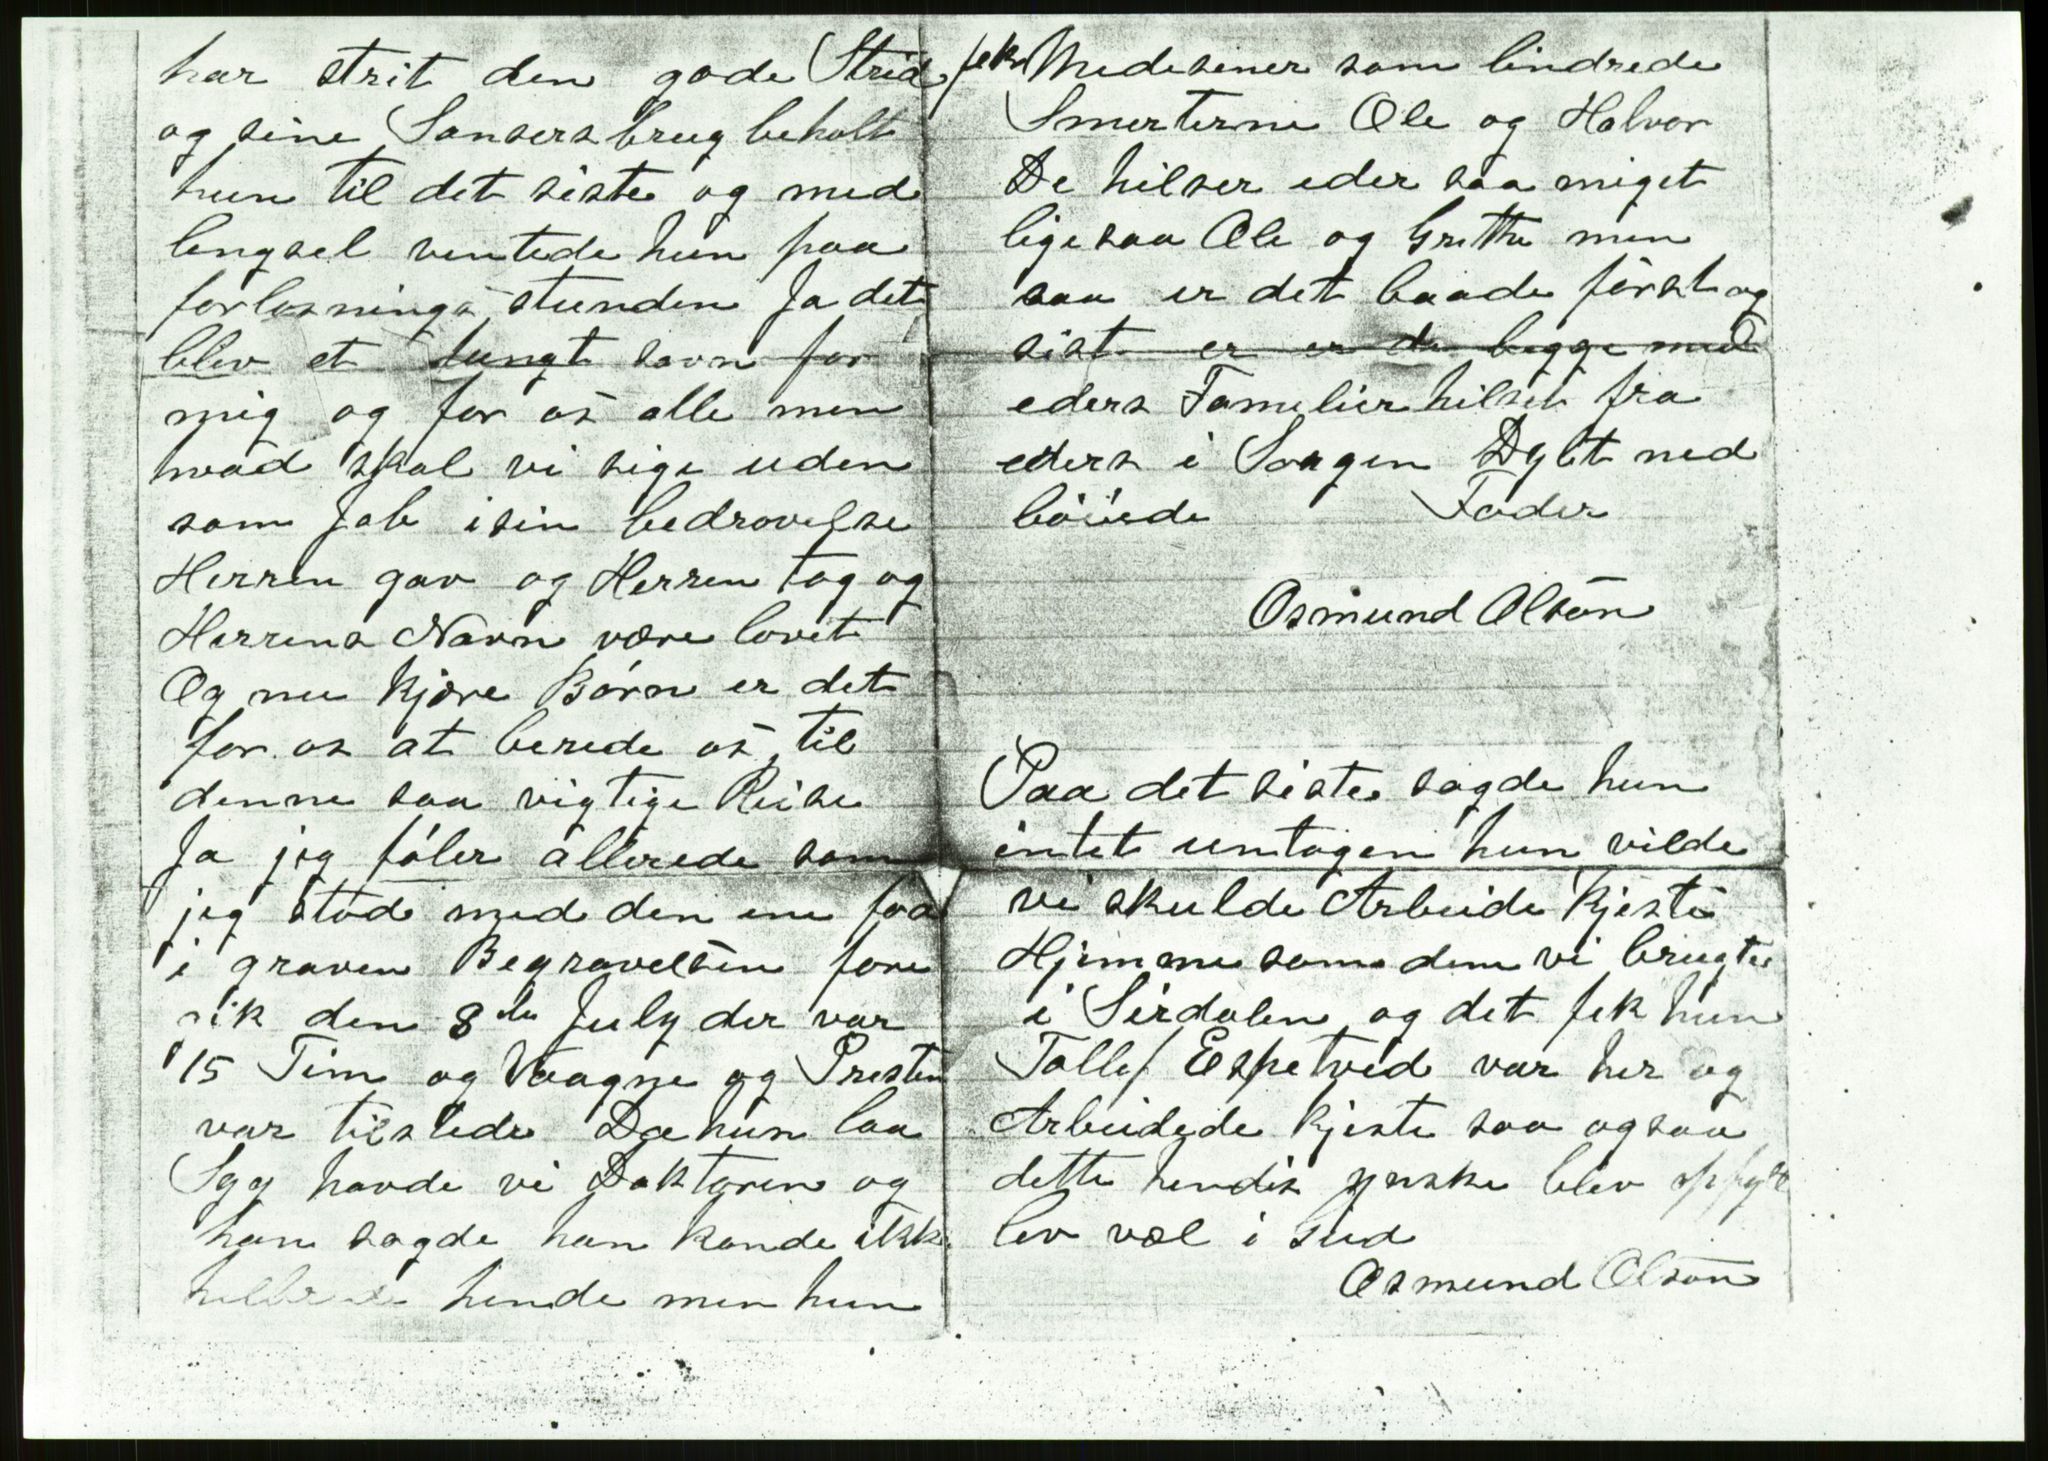 har strit den gode Strid
og sine Sansers brug beholt
hun til det siste og med
lengsel ventede hun paa
forlosnings stunden Ja det
blev et tungt savn for
mig og for os alle men
hvad skal vi sige uden
som Job i sin bedrovelse
Herren gav og Herren tog og
Herrens Navn være lovet
Og nu kjære Børn er det
for os at berede os til
denne saa vigtige Reise
Ja jeg føler allerede som
jeg stod med den ene fod
i graven Begravelsen fore
gik den 8de July der var
15 Tim og Vaagne og Presten
var tilstede Da hun laa
Syg havde vi Doktoren og
han sagde han kande ikke
hende men hun
fek Medesener som lindrede
Smerterne Ole og Halvor
De hilser eder saa meget
lige saa Ole og Gritha men
saa er det baade først og
sist er er de begge med
eders Familier hilset fra
eders i Sorgen Dybt ned
bøiede Fader
Osmund Olson
Paa det siste sagde hun
intet untagen hun vilde
vi skulde Arbeide kjeste
Hjemme som dem vi brugte
i Sirdalen og det fek hun
Tollef Espetved var her og
Arbeidede kjeste saa ogsaa
dette hendes ynske blev opfylt
lev vel i Gud
Osmund Olson